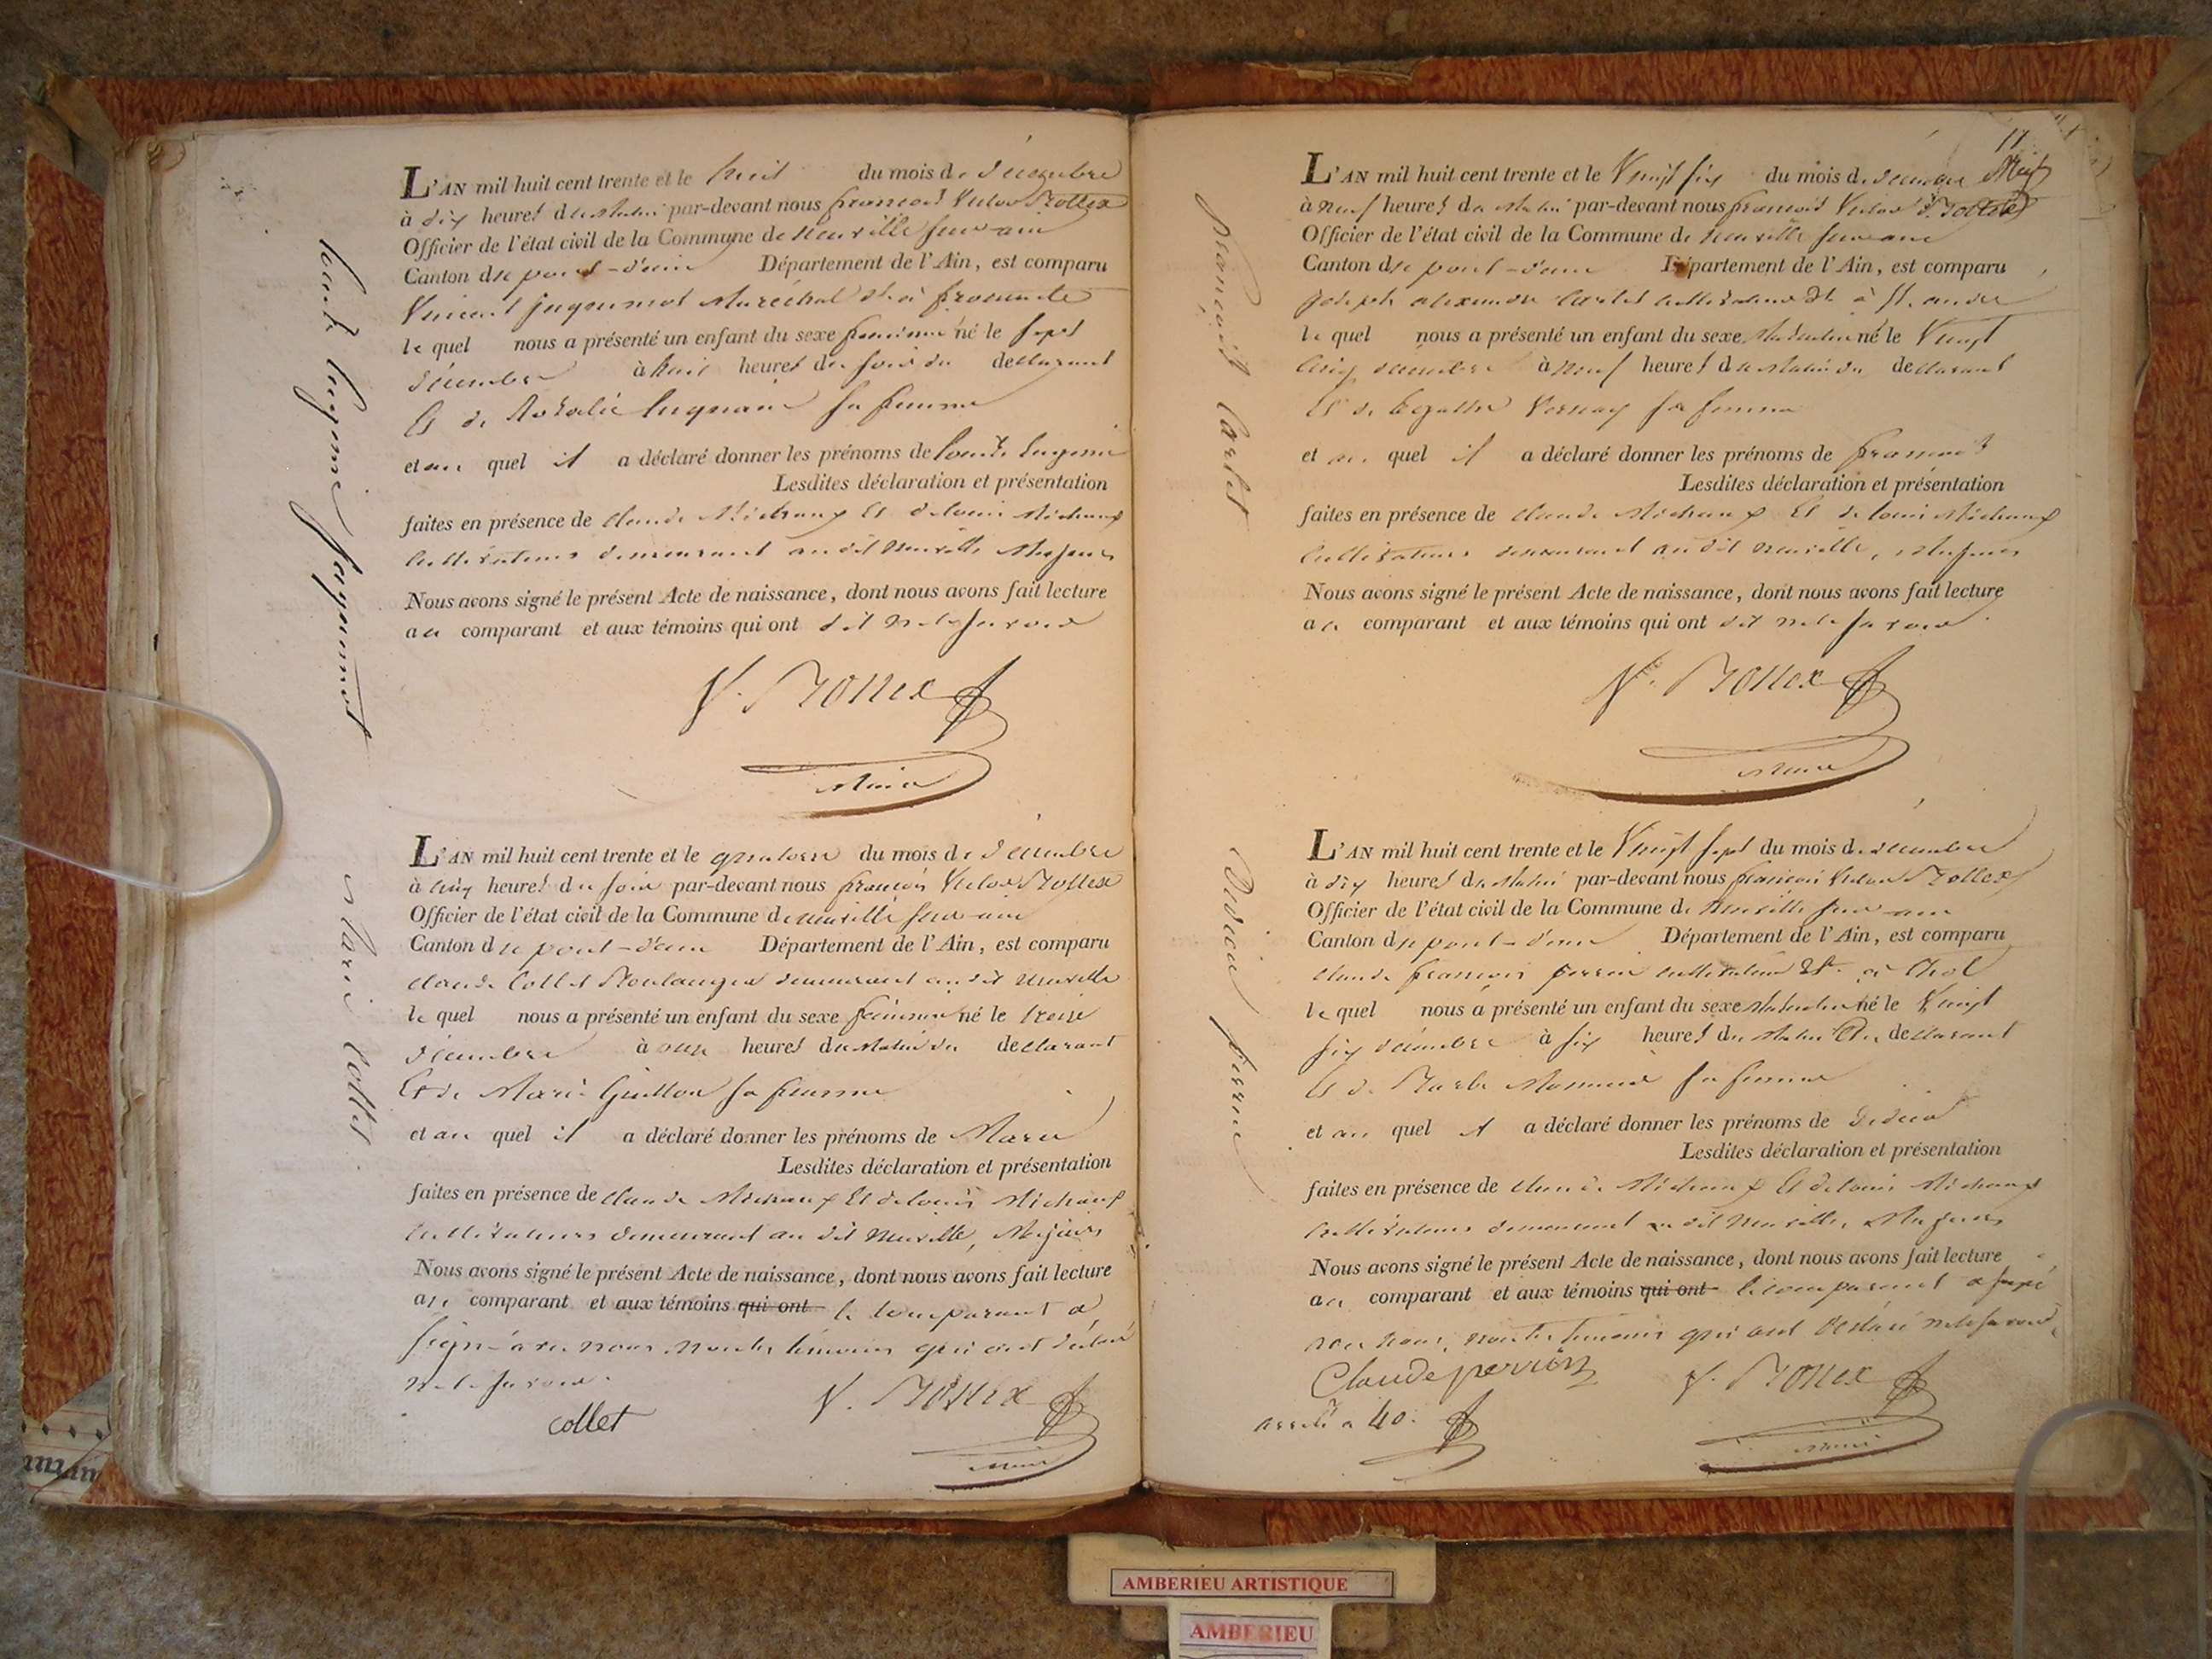 L'AN mil huit cent trente et le huit du mois de décembre
à dix heures du matin par-devant nous françois Victor Bottex
Officier de l'état civil de la Commune de neuville sur ain
Canton de pont-d'ain Département de l'Ain, est comparu
Vincent Maréchal à fromente
le quel nous a présenté un enfant du sexe feminin né le sept
décembre à huit heures du soir du declarant
Et de sa femme
et au quel il a déclaré donner les prénoms de Eugenie
Lesdites déclaration et présentation
faites en présence de claude Michaux Et de louis Michaux
Cultivateurs demeurant au dit neuville Majeurs
Nous avons signé le présent Acte de naissance, dont nous avons fait lecture
au comparant et aux témoins qui ont dit ne le savoir
V. Bottex
Maire
L'AN mil huit cent trente et le quatorze du mois de décembre
à cinq heures du soir par-devant nous françois Victor Bottex
Officier de l'état civil de la Commune de neuville sur ain
Canton de pont-d'ain Département de l'Ain, est comparu
claude Collet Boulanger demeurant au dit neuville
le quel nous a présenté un enfant du sexe féminin né le treize
décembre à onze heures du matin du declarant
Et de Marie Guillon sa femme
et au quel il a déclaré donner les prénoms de Marie
Lesdites déclaration et présentation
faites en présence de claude Michaux Et de louis Michaux
Cultivateurs demeurant au dit neuville, Majeurs
Nous avons signé le présent Acte de naissance, dont nous avons fait lecture
au comparant et aux témoins qui ont le comparant a
signé avec nous non les témoins qui ont déclaré
ne le savoir.
collet V. Bottex
Maire
Marie Collet
11
L'AN mil huit cent trente et le Vingt six du mois de décembre
à neuf heures du matin par-devant nous françois Victor Bottex
Officier de l'état civil de la Commune de neuville sur ain
Canton de pont-d'ain Département de l'Ain, est comparu
joseph alexandre Carlet cultivateur dt. à st. andré
le quel nous a présenté un enfant du sexe Masculin né le Vingt
cinq décembre à neuf heures du matin du declarant
Et de Vernay sa femme
et au quel il a déclaré donner les prénoms de françois
Lesdites déclaration et présentation
faites en présence de claude Michaux Et de louis Michaux
Cultivateurs demeurant au dit neuville, Majeurs
Nous avons signé le présent Acte de naissance, dont nous avons fait lecture
au comparant et aux témoins qui ont dit ne le savoir.
V. Bottex
Maire
françois Carlet
L'AN mil huit cent trente et le Vingt sept du mois de décembre
à dix heures du matin par-devant nous françois Victor Bottex
Officier de l'état civil de la Commune de Neuville sur ain
Canton de pont-d'ain Département de l'Ain, est comparu
claude françois perrin cultivateur dt. à Thol
le quel nous a présenté un enfant du sexe Masculin né le Vingt
six décembre à six heures du matin du declarant
Et de sa femme
et au quel il a déclaré donner les prénoms de
Lesdites déclaration et présentation
faites en présence de claude Michaux Et de louis Michaux
Cultivateurs demeurant au dit neuville, Majeurs
Nous avons signé le présent Acte de naissance, dont nous avons fait lecture
au comparant et aux témoins qui ont le comparant a signé
avec nous, non les témoins qui ont déclaré ne le savoir.
Claude perrin V. Bottex
arrêté a 40. Maire
perrin
AMBERIEU ARTISTIQUE
AMBERIEU